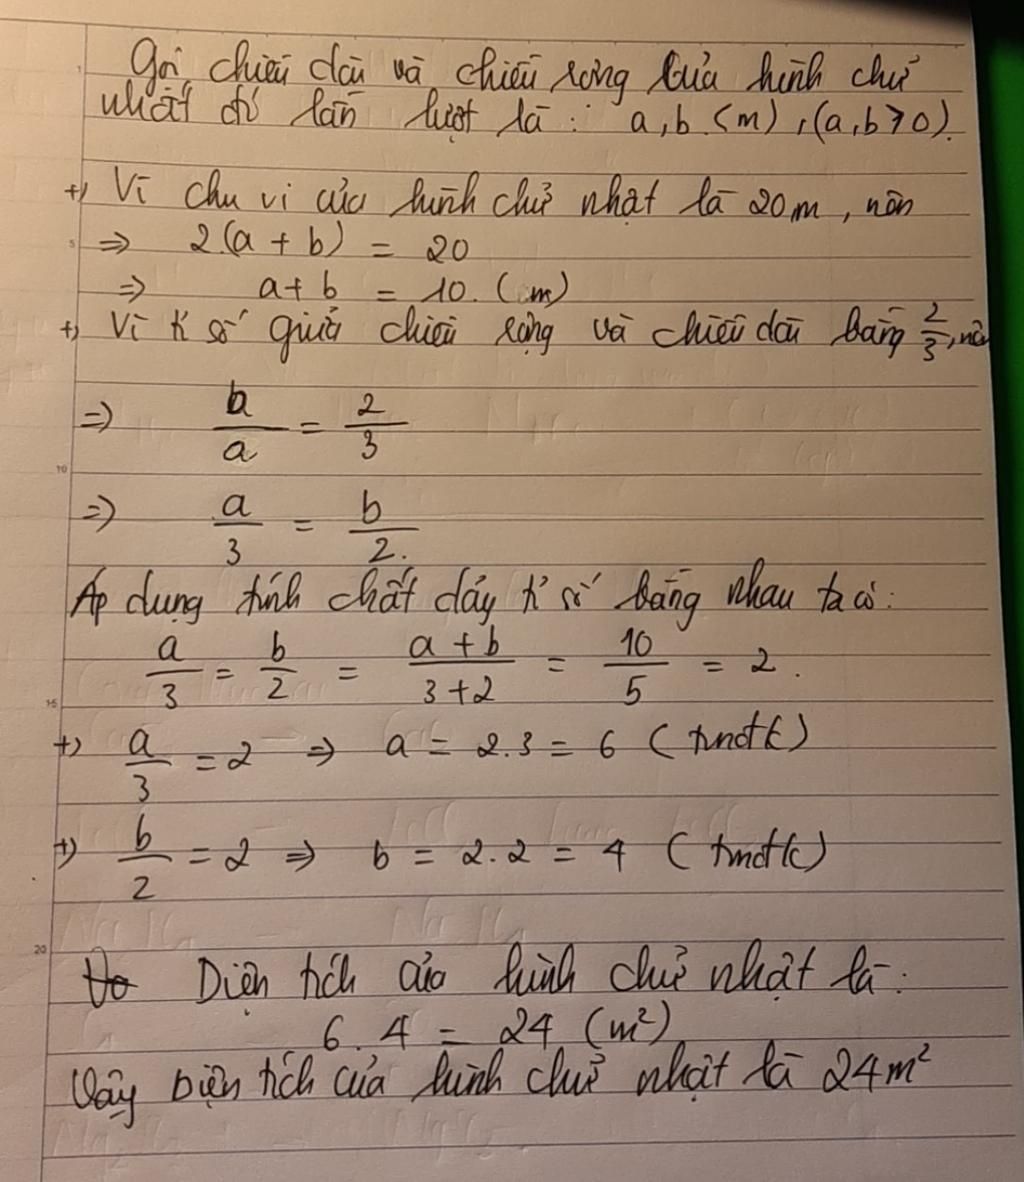 Gọi chiều dài và chiều rộng của hình chữ
nhất đó lần lượt là : a, b (m), (a, b > 0).
+) Vì chu vi của hình chữ nhật là 20m, nên
=> 2(a + b) = 20
=> a + b = 10. (m)
+) Vì tỉ số giữa chiều rộng và chiều dài bằng 2/3, nên
=> b/a = 2/3
=> a/3 = b/2.
Áp dụng tính chất dãy tỉ số bằng nhau ta có:
a/3 = b/2 = (a + b)/(3 + 2) = 10/5 = 2.
+) a/3 = 2 => a = 2.3 = 6 (tmđk)
+) b/2 = 2 => b = 2.2 = 4 (tmđk)
Diện tích của hình chữ nhật là:
6.4 = 24 (m²)
Vậy Diện tích của hình chữ nhật là 24m²